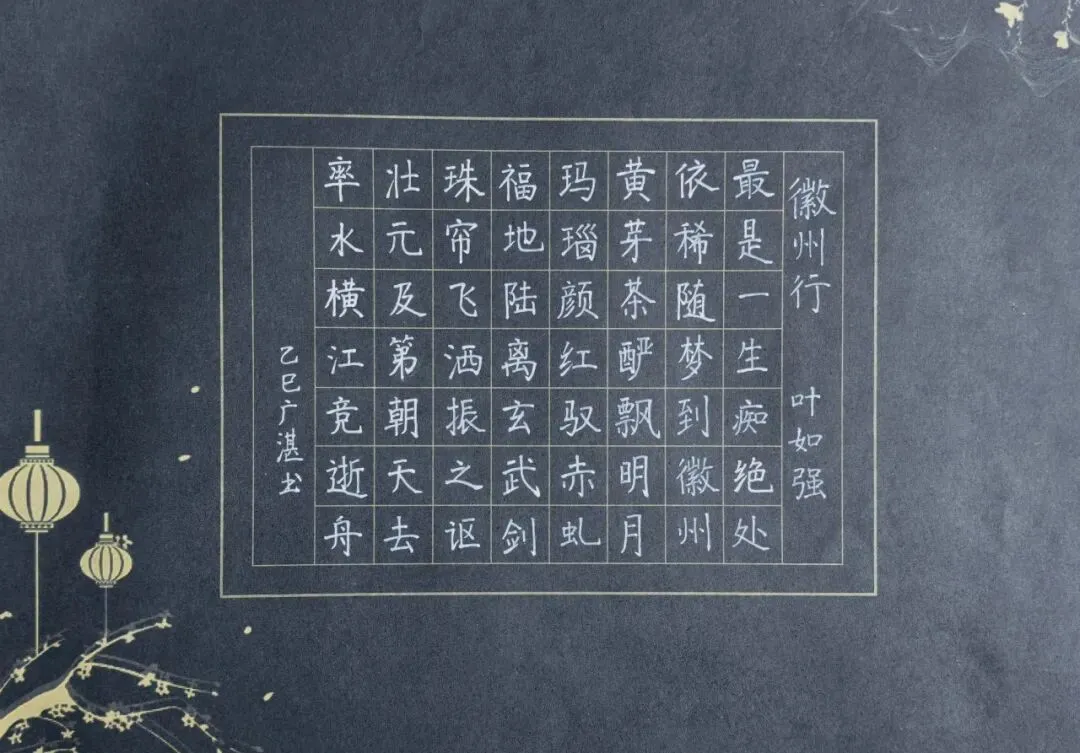 徽州行 叶如强
最是一生痴绝处
依稀随梦到徽州
黄芽茶酽飘明月
玛瑙颜红驭赤虬
福地陆离玄武剑
珠帘飞洒振之讴
壮元及第朝天去
率水横江竞逝舟
乙巳广湛书